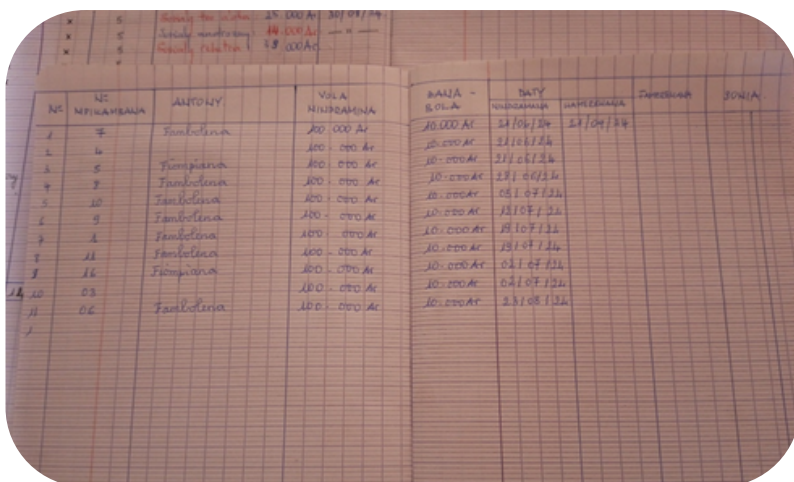 x 5 25.000 Ar 30/08/24
x 5 14.000 Ar — " —
x 5 48.000 Ar
N° N° MPIKAMBANA ANTONY VOLA NINDRAMINA ZANA-BOLA DATY NINDRAMANA SONIA
1 7 Fambolena 100.000 Ar 10.000 Ar 21/06/24
2 4 100.000 Ar 10.000 Ar 21/06/24
3 5 Fiompiana 100.000 Ar 10.000 Ar 21/06/24
4 8 Fambolena 100.000 Ar 10.000 Ar 28/06/24
5 10 Fambolena 100.000 Ar 10.000 Ar 07/24
6 9 Fambolena 100.000 Ar 10.000 Ar 07/24
7 1 Fambolena 100.000 Ar 10.000 Ar 19/07/24
8 11 Fambolena 100.000 Ar 10.000 Ar 19/07/24
9 16 Fiompiana 100.000 Ar 10.000 Ar 02/07/24
10 03 100.000 Ar 10.000 Ar 02/07/24
11 06 Fambolena 100.000 Ar 10.000 Ar 23/08/24